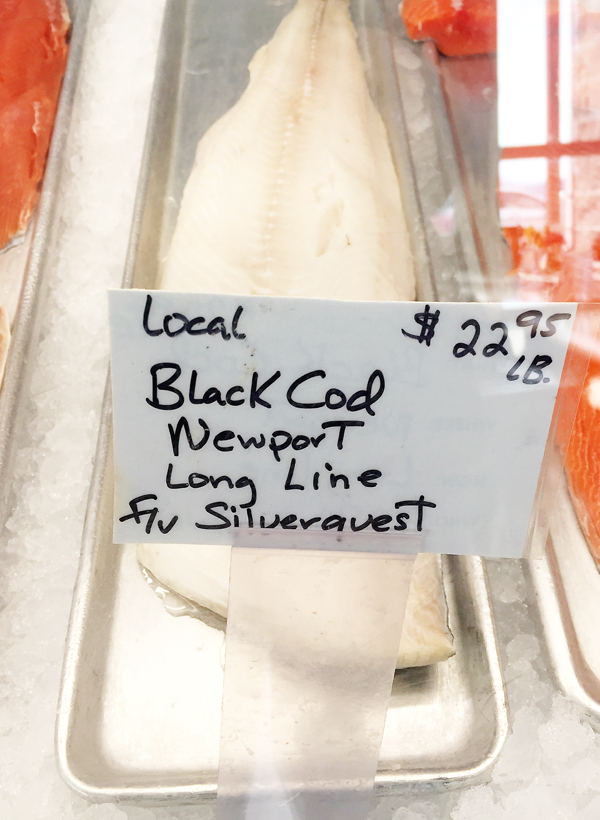 Local
$ 22 95
LB.
Black Cod
Newport
Long Line
F/V Silverquest